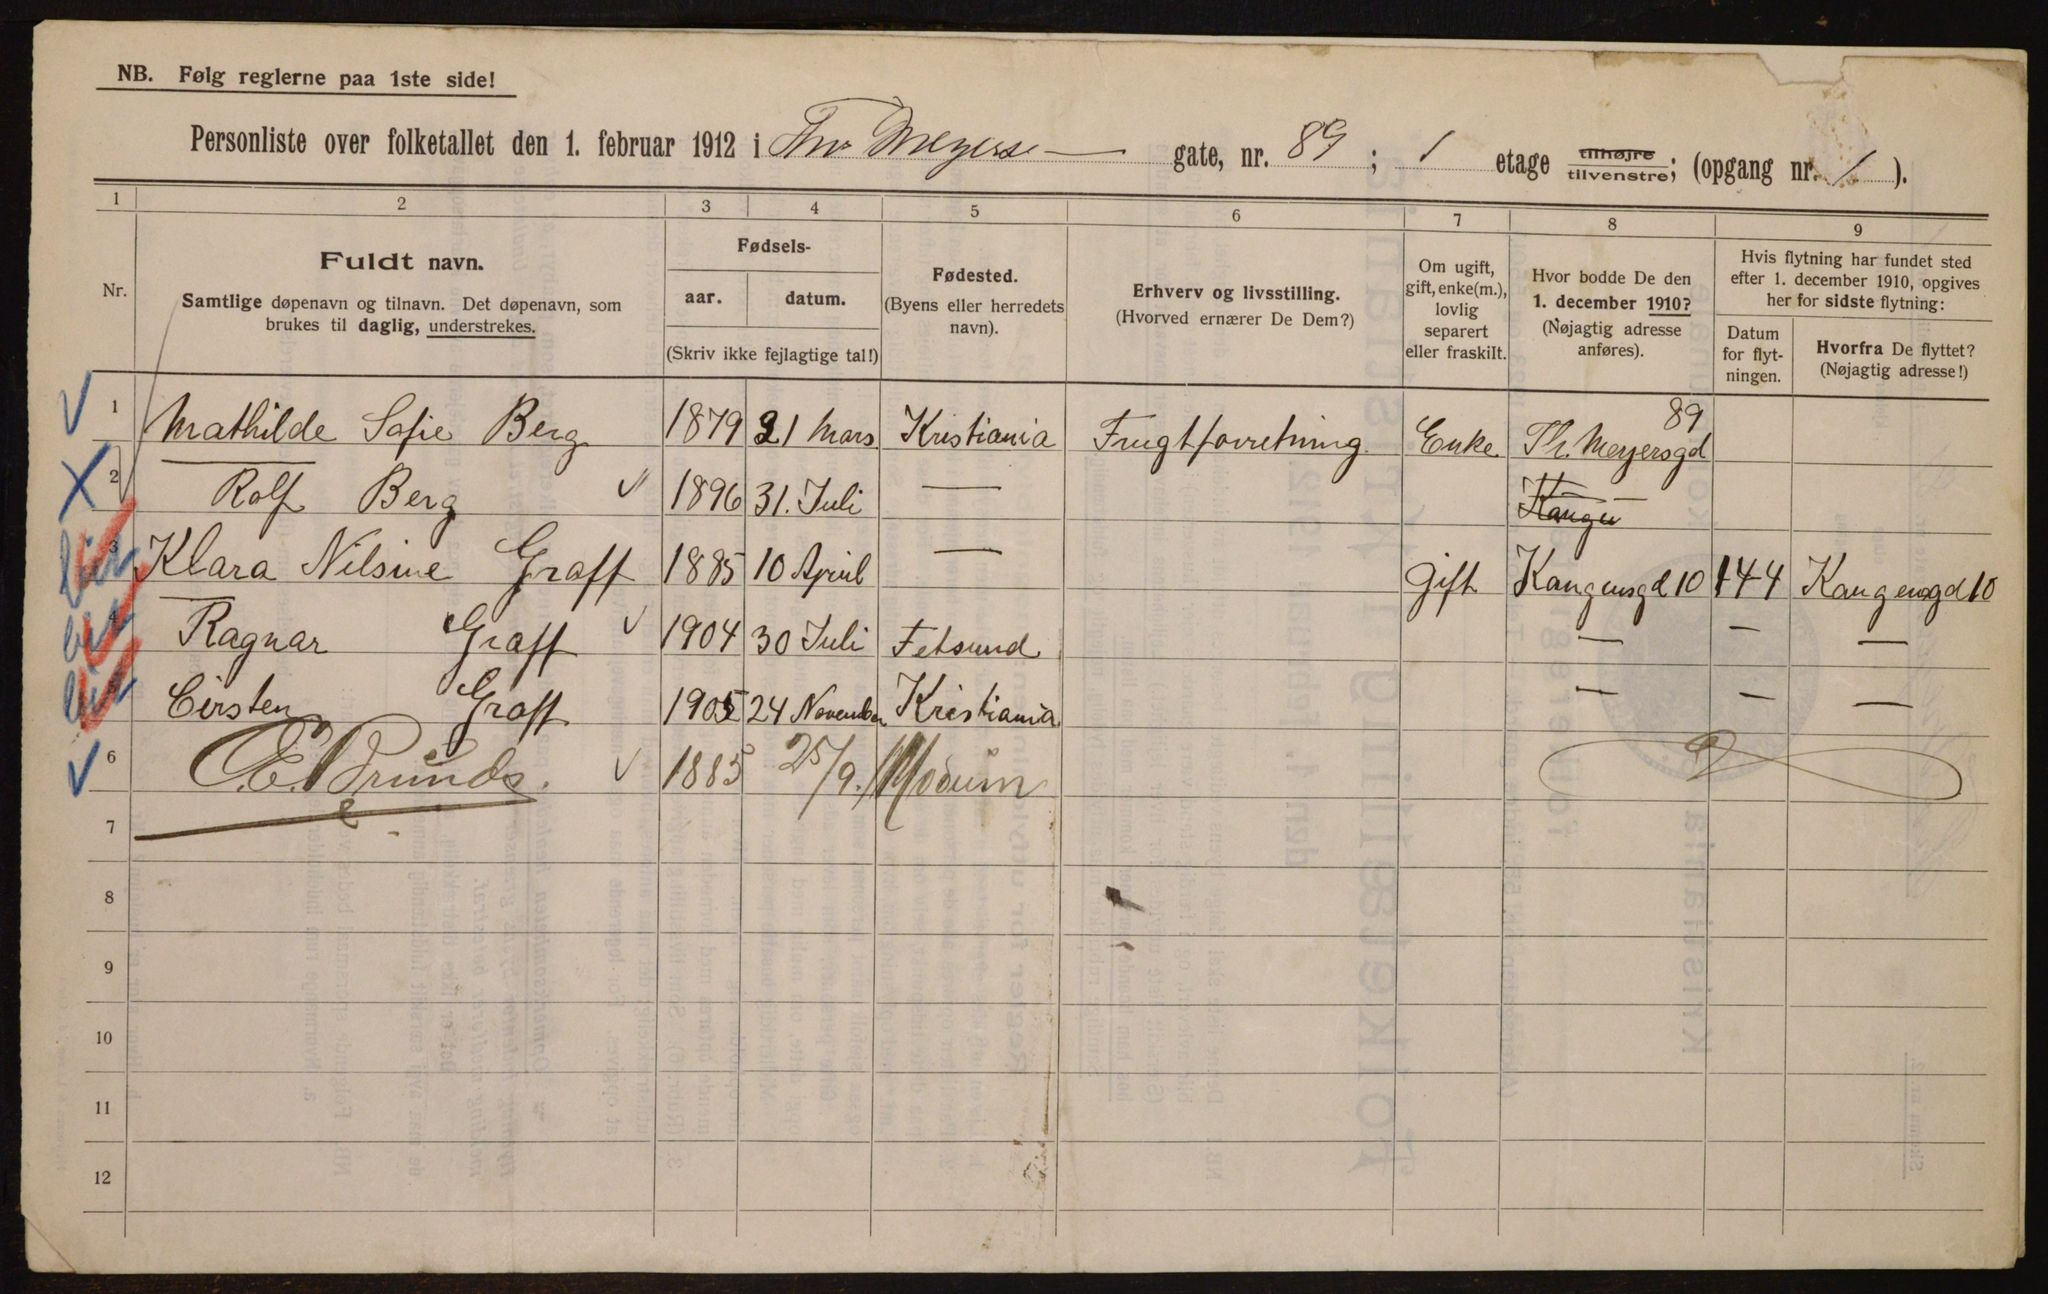 NB. Følg reglerne paa 1ste side!
Personliste over folketallet den 1. februar 1912 i Thv Meyers gate, nr. 89; 1 etage tilhøjre tilvenstre; (opgang nr. 1).
1 2 3 4 5 6 7 8 9
Nr.
Fuldt navn.
Samtlige døpenavn og tilnavn. Det døpenavn, som
brukes til daglig, understrekes.
Fødsels-
aar. datum.
(Skriv ikke fejlagtige tal!)
Fødested.
(Byens eller herredets
navn).
Erhverv og livsstilling.
(Hvorved ernærer De Dem?)
Om ugift,
gift, enke(m.),
lovlig
separert
eller fraskilt.
Hvor bodde De den
1. december 1910?
(Nøjagtig adresse
anføres).
Hvis flytning har fundet sted
efter 1. december 1910, opgives
her for sidste flytning:
Datum
for flyt-
ningen.
Hvorfra De flyttet?
(Nøjagtig adresse!)
1 Mathilde Sofie Berg 1879 21 Mars Kristiania Frugtforretning Enke Th. Meyersgd 89
2 Rolf Berg 1896 31. Juli — —
3 Klara Nilsine Graff 1885 10 April — Gift Kangensgd 10 1 4 4 Kangensgd 10
4 Ragnar Graff 1904 30 Juli Fetsund — — —
5 Cirsten Graff 1905 24 November Kristiania — — —
6 E. Brunds. 1885 25/9. Modum
7
8
9
10
11
12